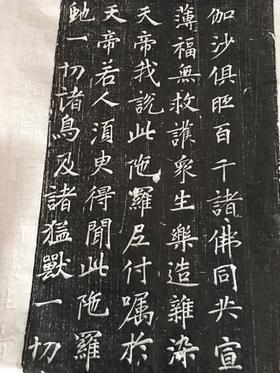 伽沙俱胝百千諸佛同共宣
薄福無救護衆生樂造雜染
天帝我說此陁羅尼付囑於
天帝若人須臾得聞此陁羅
虵一切諸鳥及諸猛獸一切